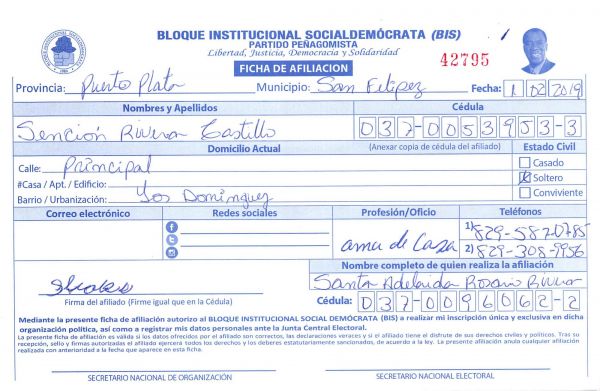 BLOQUE INSTITUCIONAL SOCIALDEMÓCRATA (BIS)
PARTIDO PEÑAGOMISTA
Libertad, Justicia, Democracia y Solidaridad
42795
FICHA DE AFILIACION
Provincia: Puerto Plata Municipio: San Felipez Fecha: 1 02 2019
Nombres y Apellidos Cédula
Sención Rivera Castillo 037-0053953-3
Domicilio Actual (Anexar copia de cédula del afiliado) Estado Civil
Calle: Principal Casado
#Casa / Apt. / Edificio: Soltero
Barrio / Urbanización: Los Dominguez Conviviente
Correo electrónico Redes sociales Profesión/Oficio Teléfonos
ama de Casa 1) 829-582-0785
2) 829-308-9956
Nombre completo de quien realiza la afiliación
Santa Adelaida Rosario Rivera
Firma del afiliado (Firme igual que en la Cédula) Cédula: 037-0096062-2
Mediante la presente ficha de afiliación autorizo al BLOQUE INSTITUCIONAL SOCIAL DEMÓCRATA (BIS) a realizar mi inscripción única y exclusiva en dicha
organización política, así como a registrar mis datos personales ante la Junta Central Electoral.
La presente ficha de afiliación es válida si los datos ofrecidos por el afiliado son correctos, las declaraciones veraces y si el afiliado tiene el disfrute de sus derechos civiles y políticos. Tras su
recepción, sello y firmas autorizadas el afiliado ejercerá todos los derechos y los deberes estatutariamente sancionados, de acuerdo a la ley. La presente afiliación anula cualquier afiliación
realizada con anterioridad a la fecha que aparece en esta ficha.
SECRETARIO NACIONAL DE ORGANIZACIÓN SECRETARIO NACIONAL ELECTORAL